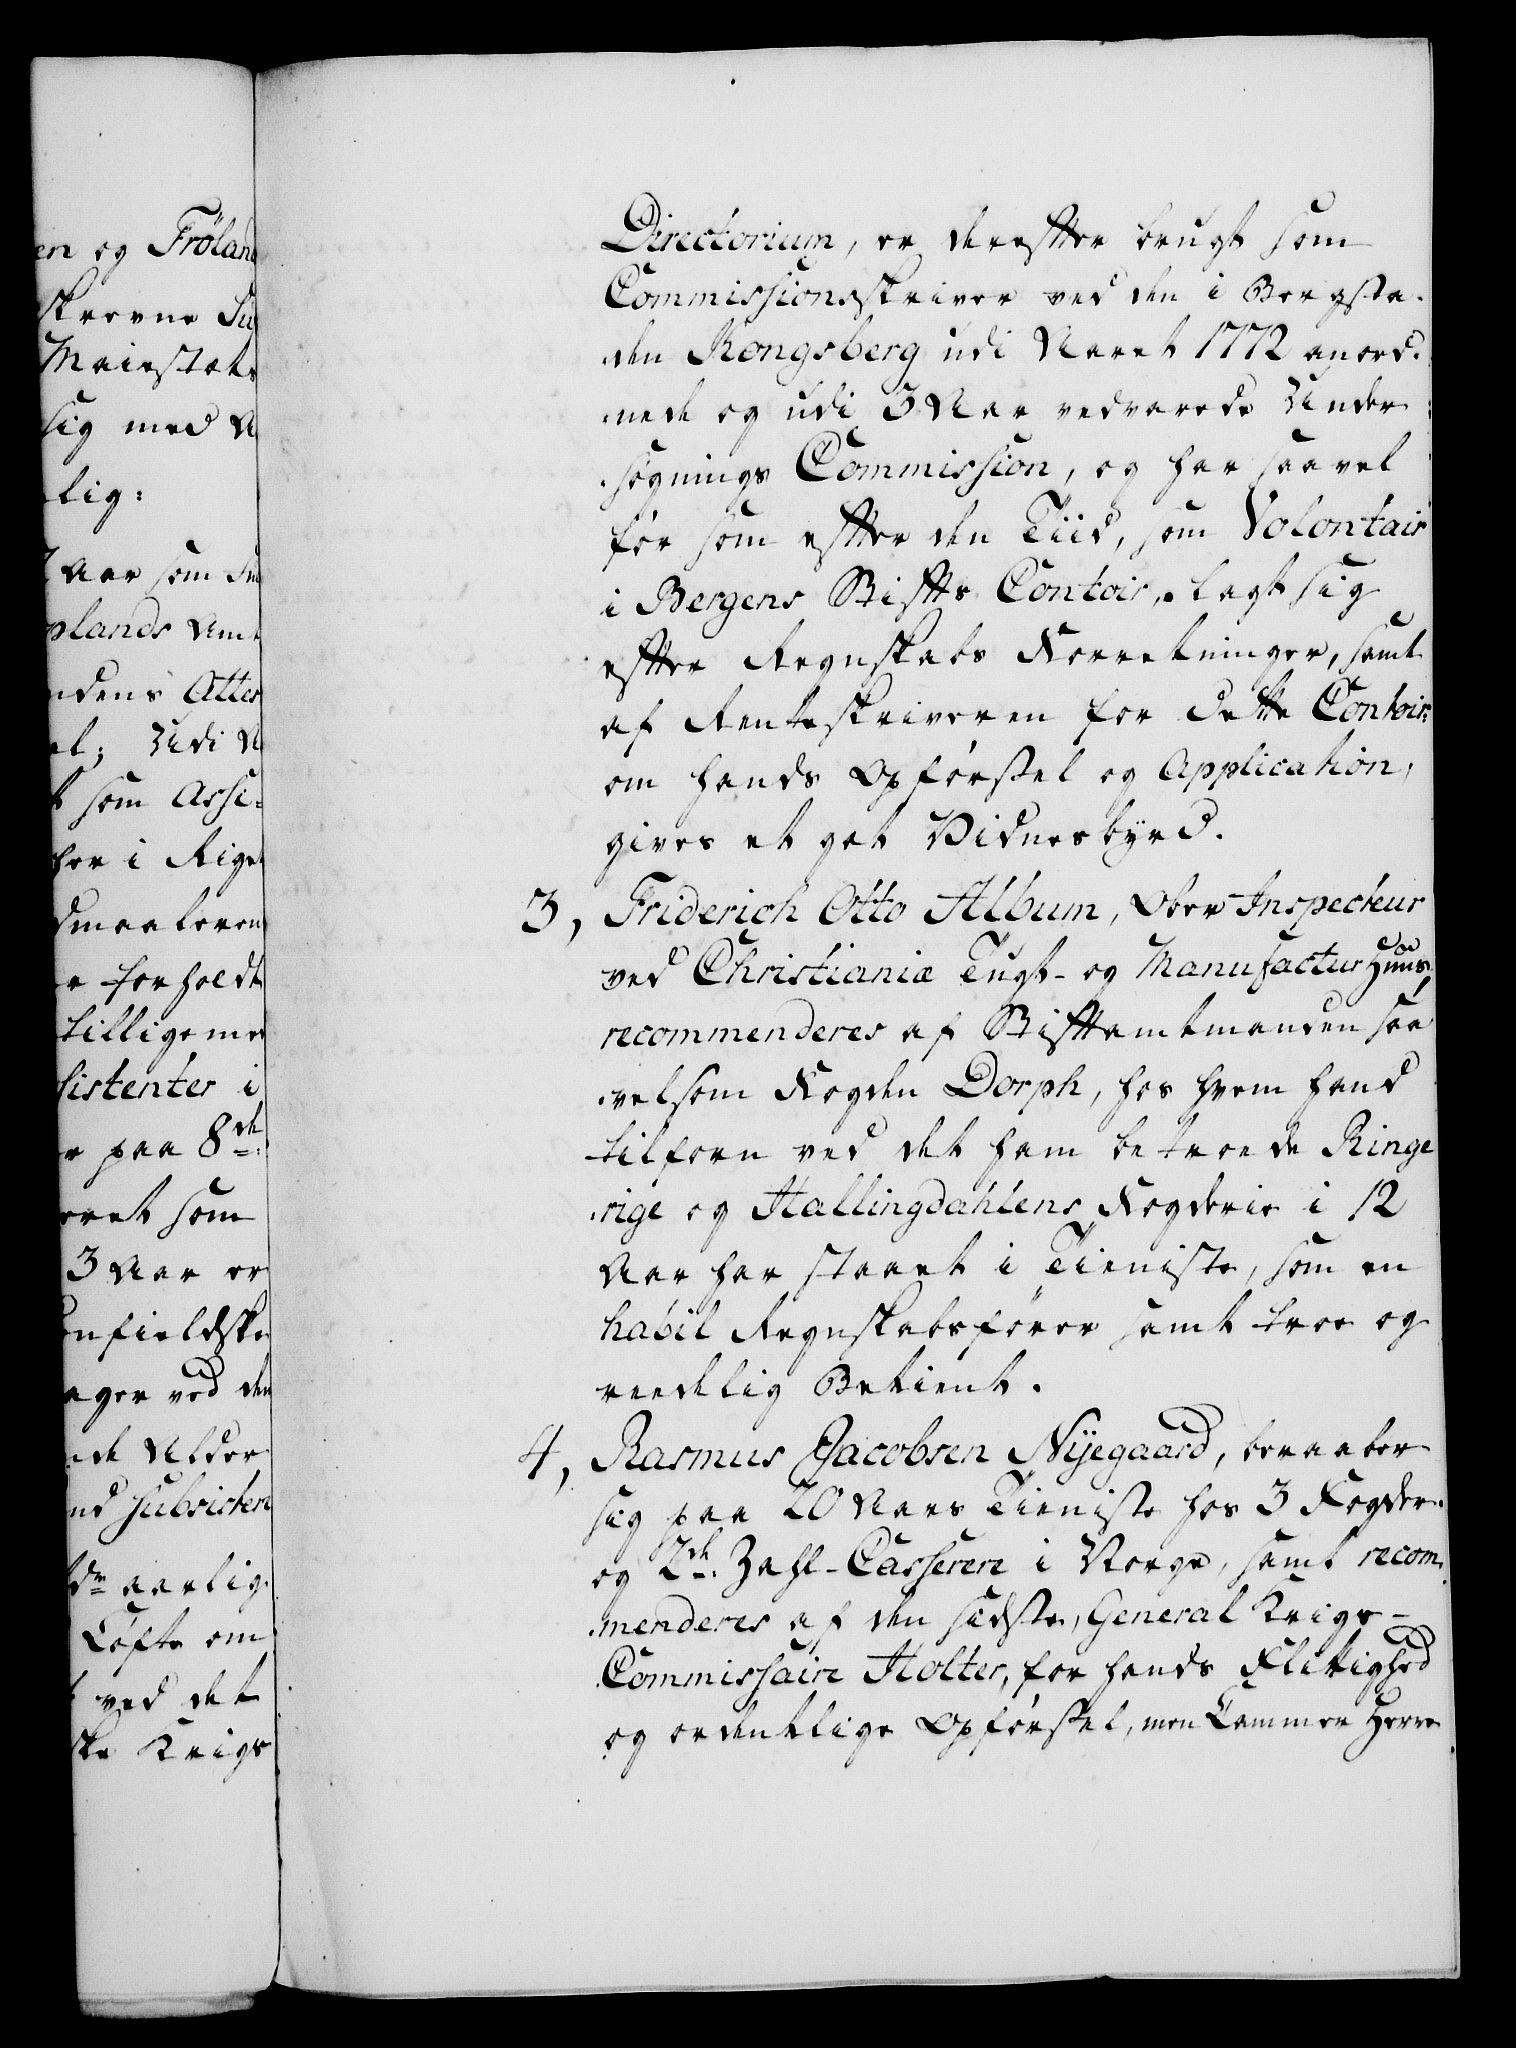 en og Frøland
skrevne Su
Maiestets
sig med A
lig:
Aar som
plands Amt
ndens Attes
el; Udi A
t som Assi-
her i Rige
dmaaleren
forholdt
tilligemed
sistenter i
r paa 8de:
oret som
3 Aar er
nfieldske
ager ved den
nde Alder
nd subsistere
dr aarlig
Løfte om
ved det
ske Krigs
Directorium, er derefter brugt som
Commissionsskriver ved den i Bergsta-
den Kongsberg udi Aaret 1772 anord-
nede og udi 3 Aar vedvarede Under-
søgnings Commission, og har saavel
før som efter den Tiid, som Volontair
i Bergens Stifts Contoir, lagt sig
efter Regnskabs Forretninger, samt
af Renteskriveren for dette Contoir
om hands Opførsel og Application,
gives et got Vidnesbyrd.
3, Friderich Otto Album, Ober Inspecteur
ved Christianiæ Tugt- og Manufactur Huus,
recommenderes af Stiftamtmanden saa
velsom Fogden Dorph, hos hvem hand
tilforn ved det ham betroede Ringe
rige og Hallingdahlens Fogderie i 12
Aar har staaet i Tieniste, som en
habil Regnskabsfører samt troe og
reedelig Betient.
4, Rasmus Jacobsen Nyegaard, beraaber
sig paa 20 Aars Tieniste hos 3 Fogder
og 2de: Zahl-Casserere i Norge, samt recom-
menderes af den sidste, General Krigs-
Commissaire Holter, for hands Flittighed
og ordentlige Opførsel, men Cammer Herre